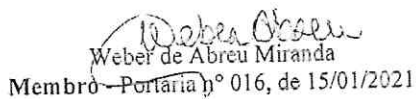 Weber Abreu
Weber de Abreu Miranda
Membro - Portaria nº 016, de 15/01/2021